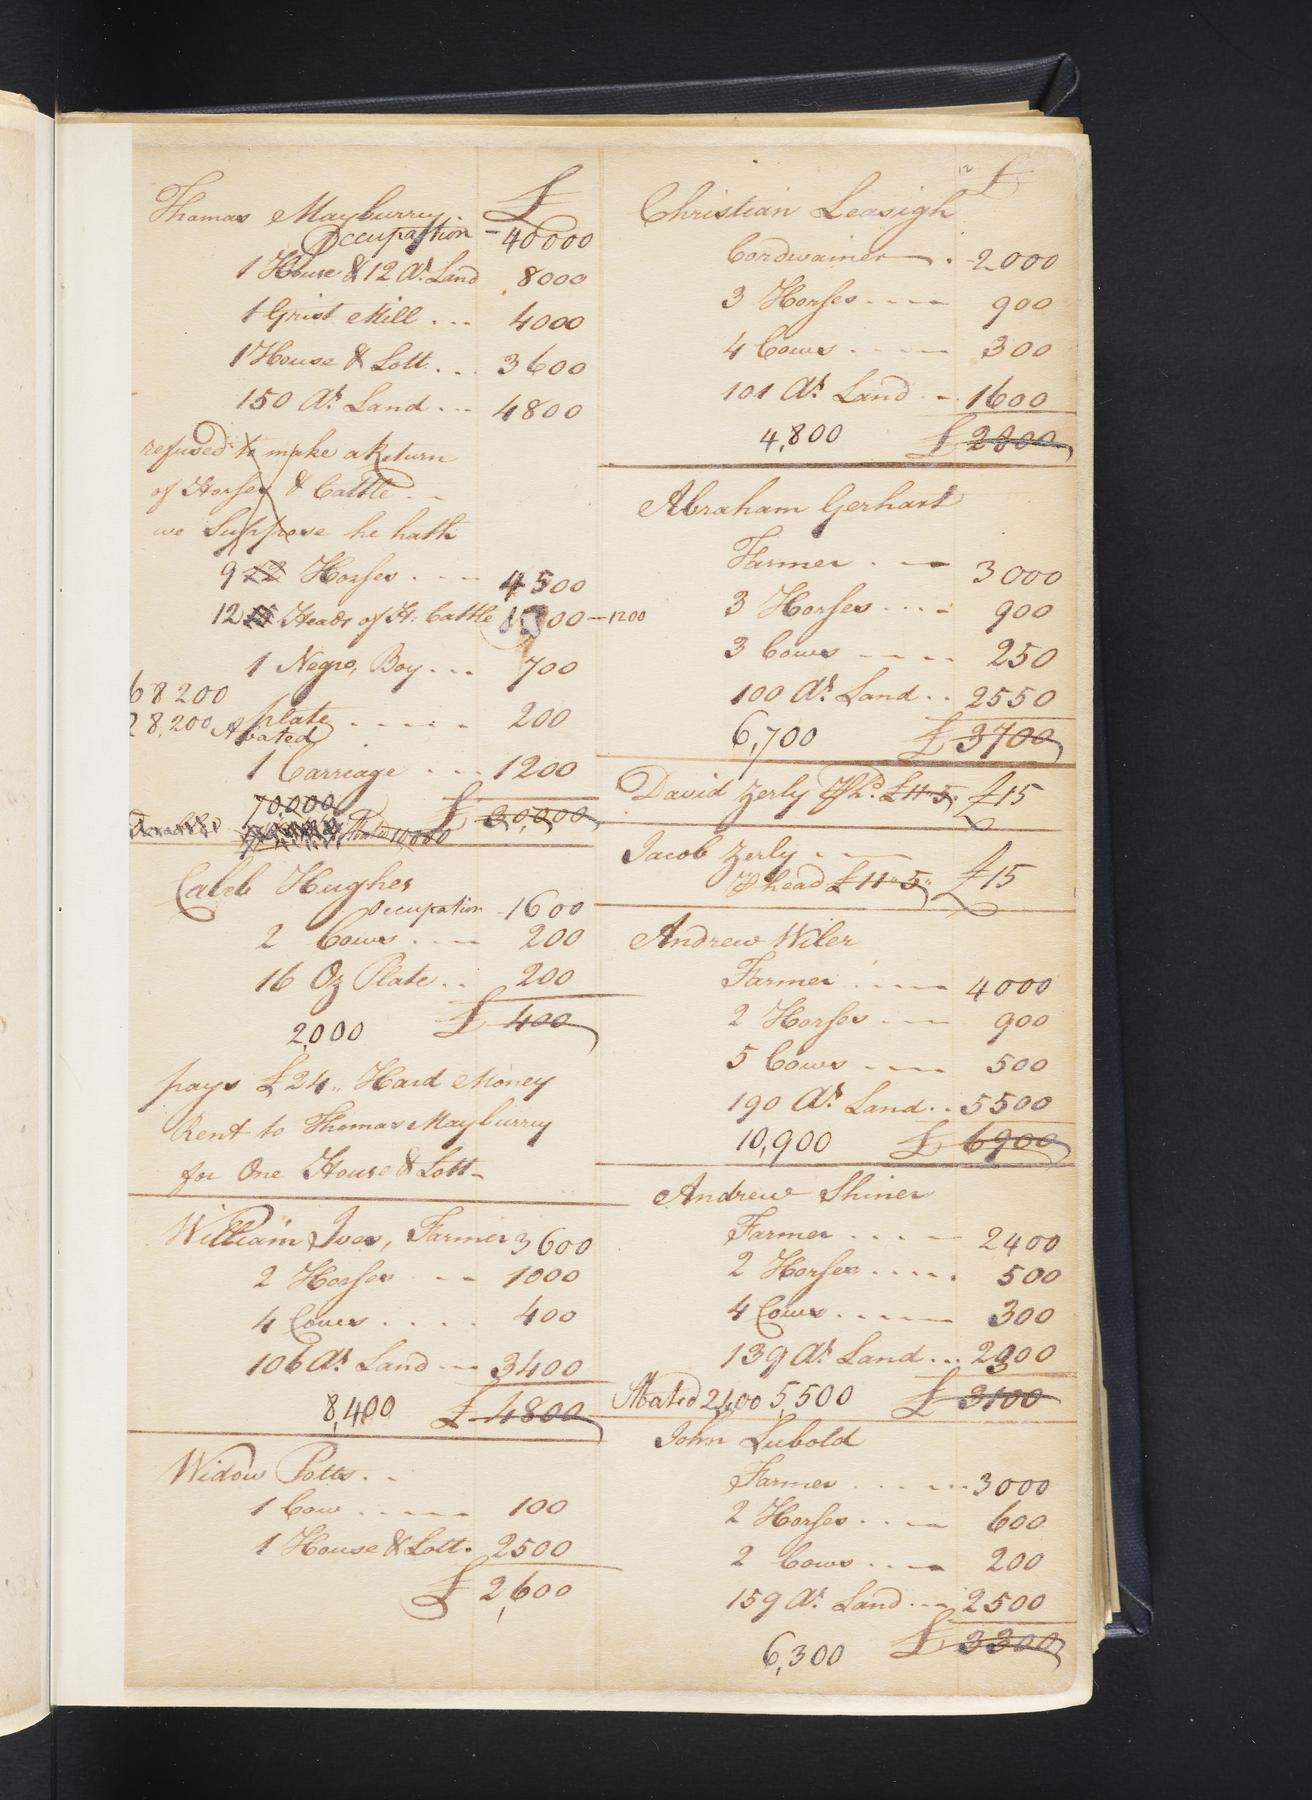 Thomas Mayburry. £
Occupaftion - 40000
1 House & 12 Ars. Land 8000
1 Grist Mill ... 4000
1 House & Lott ... 3600
150 Ars. Land ... 4800
refused to make a Return
of Horses & Cattle -
we Suppose he hath
9 12 Horses .... 4500
12 Heads of H. Cattle 00 - 1200
1 Negro, Boy ... 700
68200
28,200 Abated
plate ..... 200
1 Carriage ... 1200
70,000
£ 30,000
10,000
Caleb Hughes
Occupation - 1600
2 Cows .... 200
16 Oz Plate .. 200
2,000 £ 400
pays £24,, Hard Money
Rent to Thomas Mayburry
for One House & Lott -
William Ives, Farmer 3600
2 Horses -- 1000
4 Cows .... 400
106 Ars. Land --- 3400
8,400 £ 4800
Widow Potts . -
1 Cow ..... 100
1 House & Lott. 2500
£ 2,600
12 £
Christian Leasigh
Cordwainer . - 2000
3 Horses .... 900
4 Cows .... 300
101 Ars. Land .. 1600
4,800 £ 2800
Abraham Gerhart
Farmer . -- 3000
3 Horses .... 900
3 Cows .... 250
100 Ars. Land .. 2550
6,700 £ 3700
David Zerly £11"5, £15
Jacob Zerly . -
head £11"5" £15
Andrew Wiler
Farmer .... 4000
2 Horses ... 900
5 Cows .... 500
190 Ars. Land .. 5500
10,900 £ 6900
Andrew Shiner
Farmer .... 2400
2 Horses ..... 500
4 Cows ..... 300
139 Ars. Land ... 2300
Abated 2400 5,500 £ 3100
John Lubold
Farmer ..... 3000
2 Horses .... 600
2 Cows .... 200
159 Ars. Land ... 2500
6,300 £ 3300